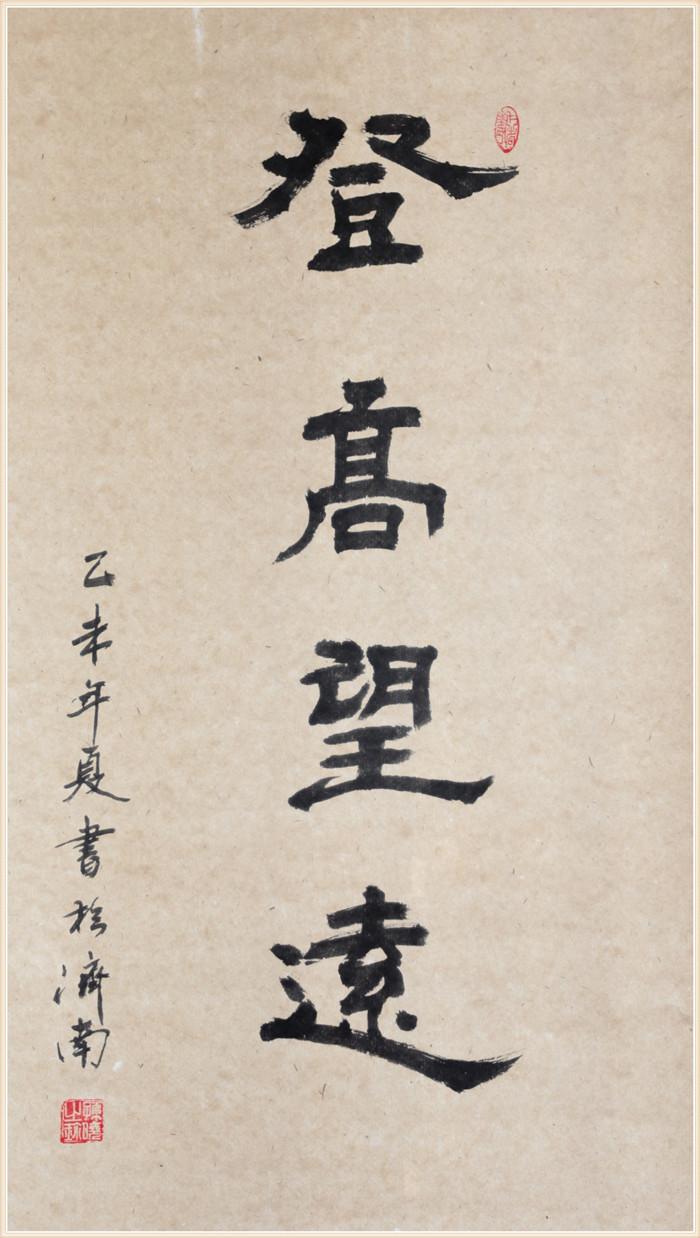 登髙望遠
乙未年夏書於濟南